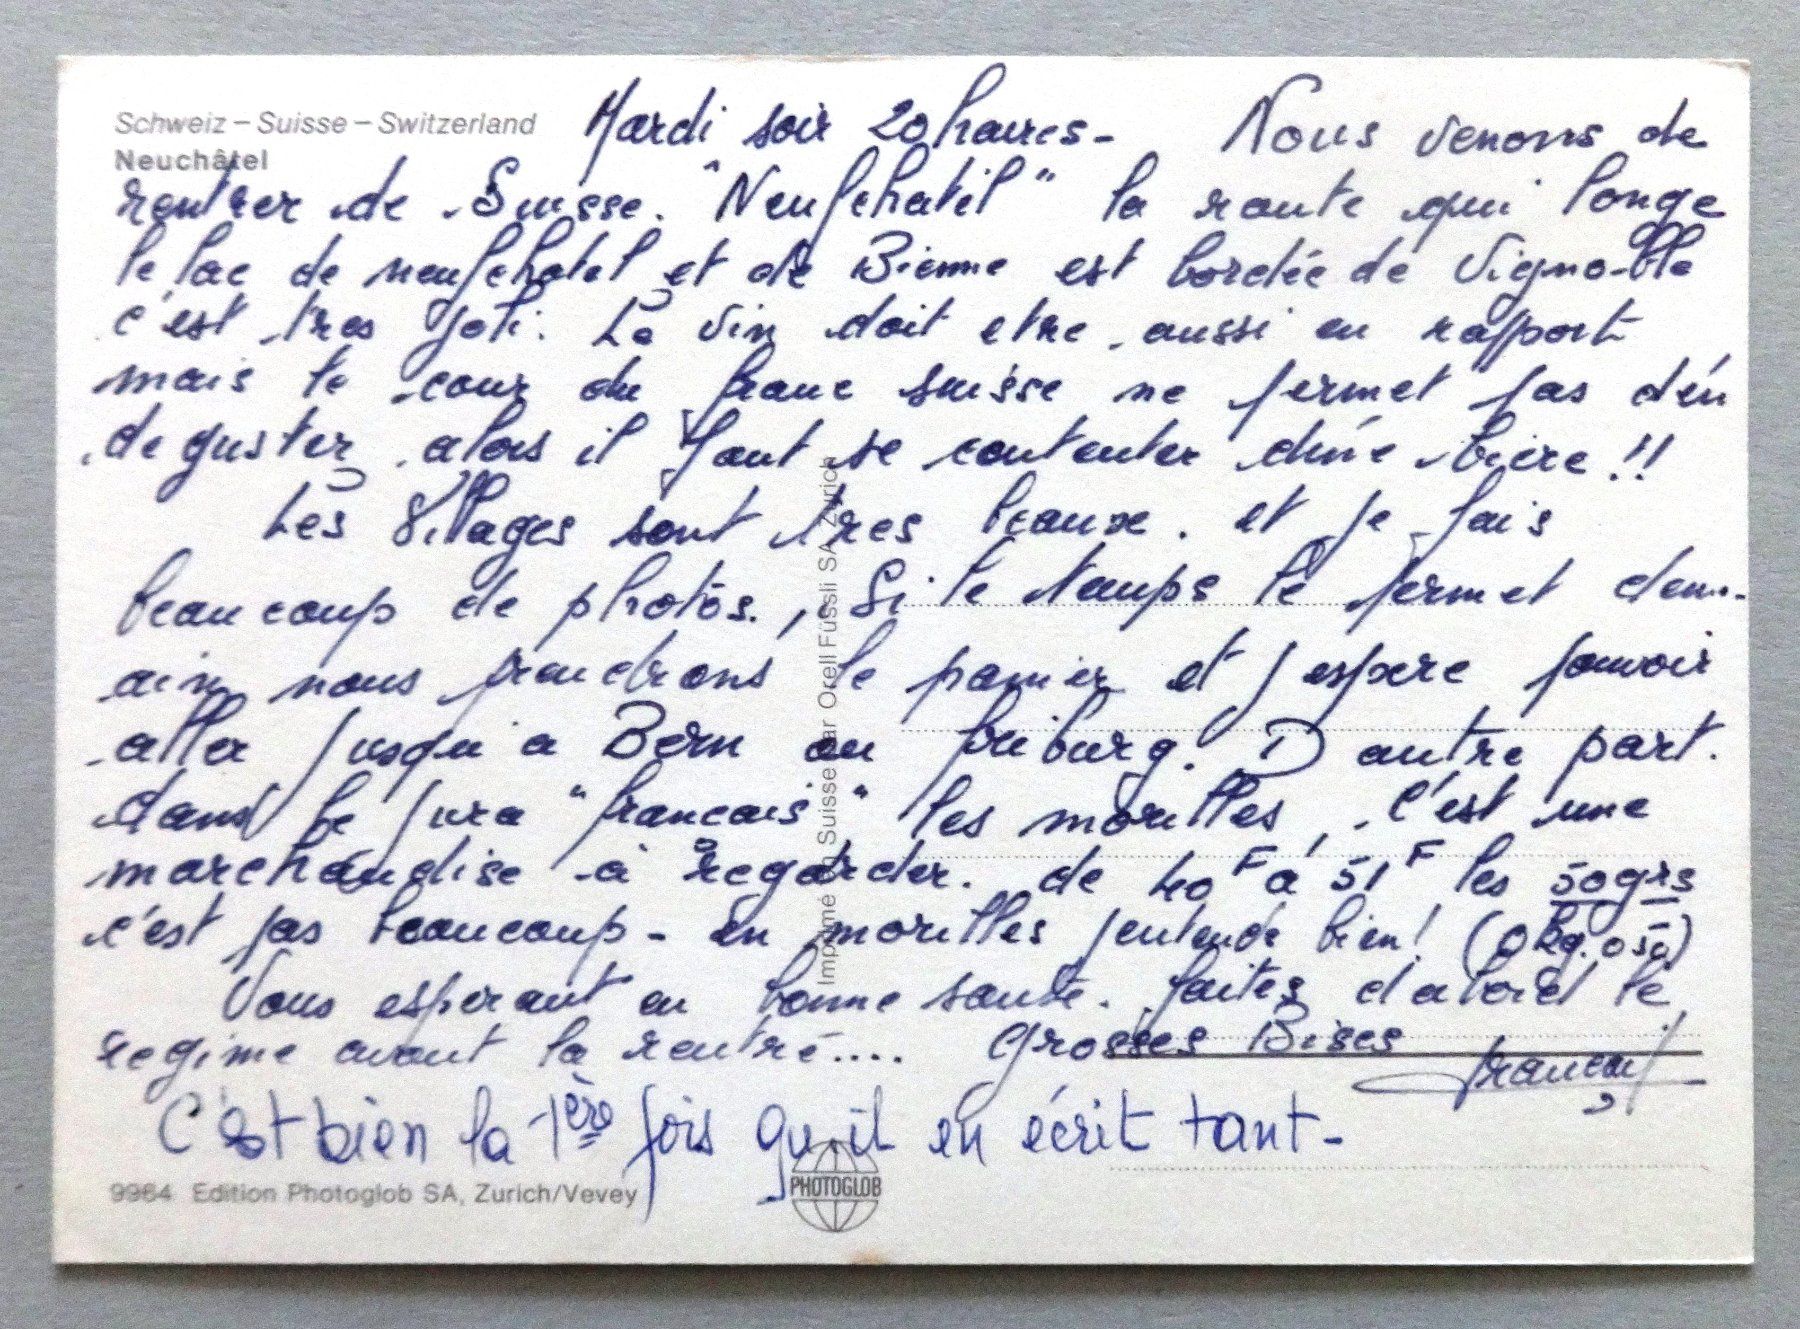 Schweiz – Suisse – Switzerland
Neuchâtel
Mardi soir 20 heures - Nous venons de
rentrer de Suisse. "Neufchatel" la route qui longe
le lac de neufchatel et de Bienne est bordée de Vigno-ble
c'est tres joli. Le vin doit etre aussi en rapport
mais le cour du franc suisse ne permet pas d'en
deguster alors il faut se contenter d'une biere !!
Les Villages sont tres beaux. et je fais
beaucoup de photos. , Si le temps le permet dem-
ain nous prendrons le panier et j espere pouvoir
aller jusqu'a Bern ou friburg. D autre part.
dans le jura "francais" les morilles, c'est une
marchandise à regarder. de 40F à 51F les 50grs
c'est pas beaucoup - en morilles j'entends bien! (0kg.050)
Vous esperant en bonne santé. faites d abord le
regime avant la rentré.... Grosses Bises
C'est bien la 1ère fois qu'il en écrit tant -
9964 Edition Photoglob SA, Zurich/Vevey
PHOTOGLOB
Imprimé en Suisse par Orell Füssli SA Zurich